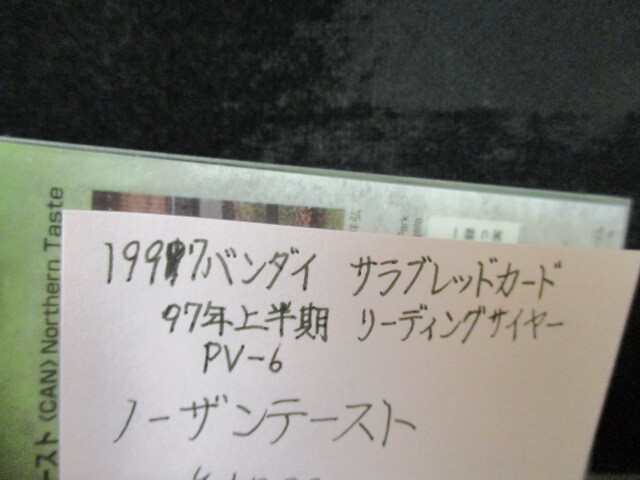 1997バンダイ サラブレッドカード
97年上半期 リーディングサイヤー
PV-6
ノーザンテースト
ースト (CAN) Northern Taste
Park